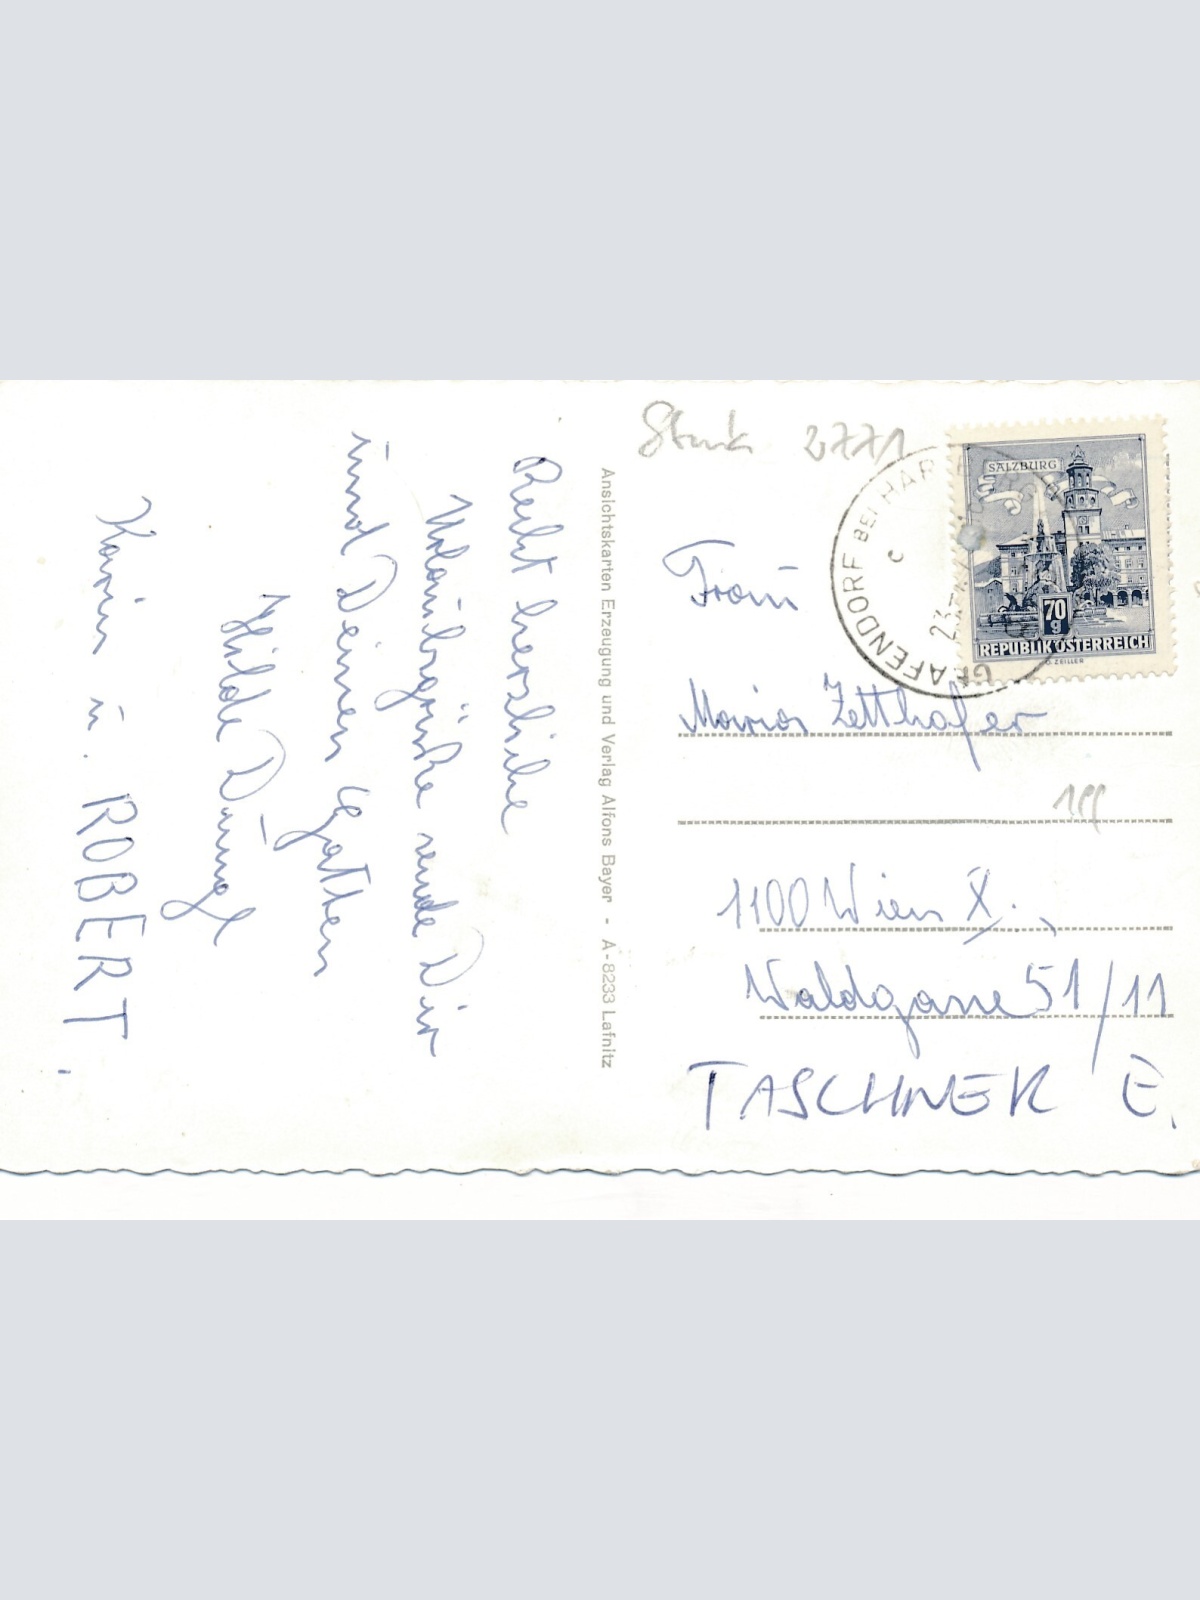 Recht herzliche
Urlaubsgrüße sende Dir
und Deinen Gatten
Hilde
Karin u. ROBERT.
Ansichtskarten Erzeugung und Verlag Alfons Bayer - A-8233 Lafnitz
2771
SALZBURG
70 g
REPUBLIK ÖSTERREICH
O. ZEILLER
GRAFENDORF BEI HAR
c
23.
Frau
Maria Zetthofer
1100 Wien X.,
Waldgasse 51/11
TASCHNER E.